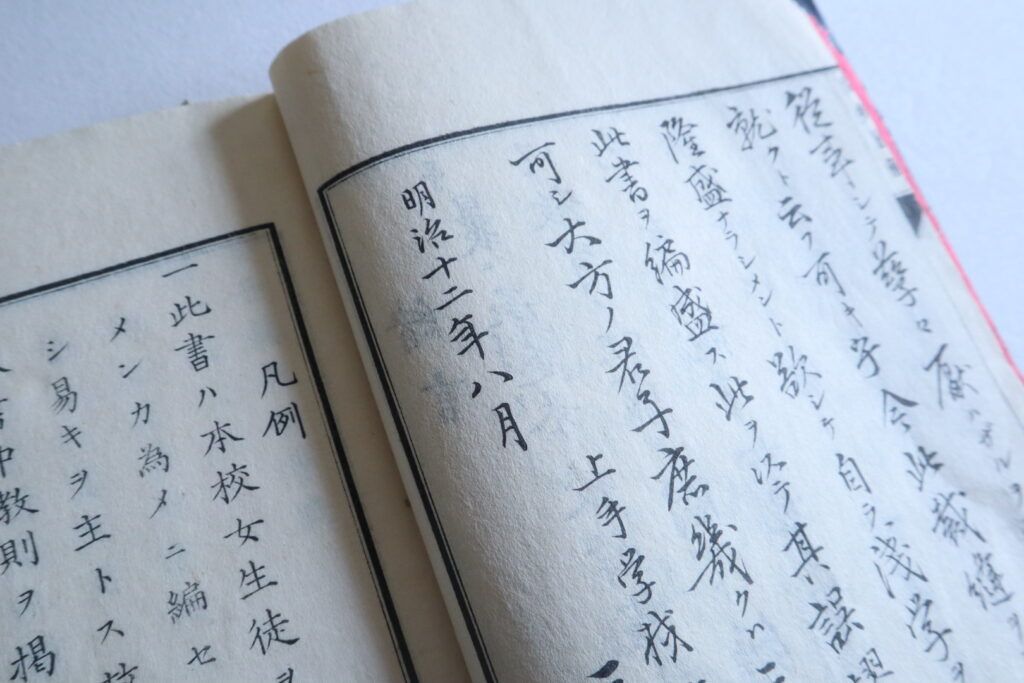 徒事トシテ孳々厭ハザル
就クト云フ可キ乎今此裁縫
隆盛ナラシメント欲シテ自ラ浅学ヲ
此書ヲ編盛ス此ヲ以テ其誤
可シ大方ノ君子庶幾クハ
明治十二年八月
上手学校
凡例
一此書ハ本校女生徒ヲ
メンカ為メニ編セ
シ易キヲ主トス
教則ヲ掲